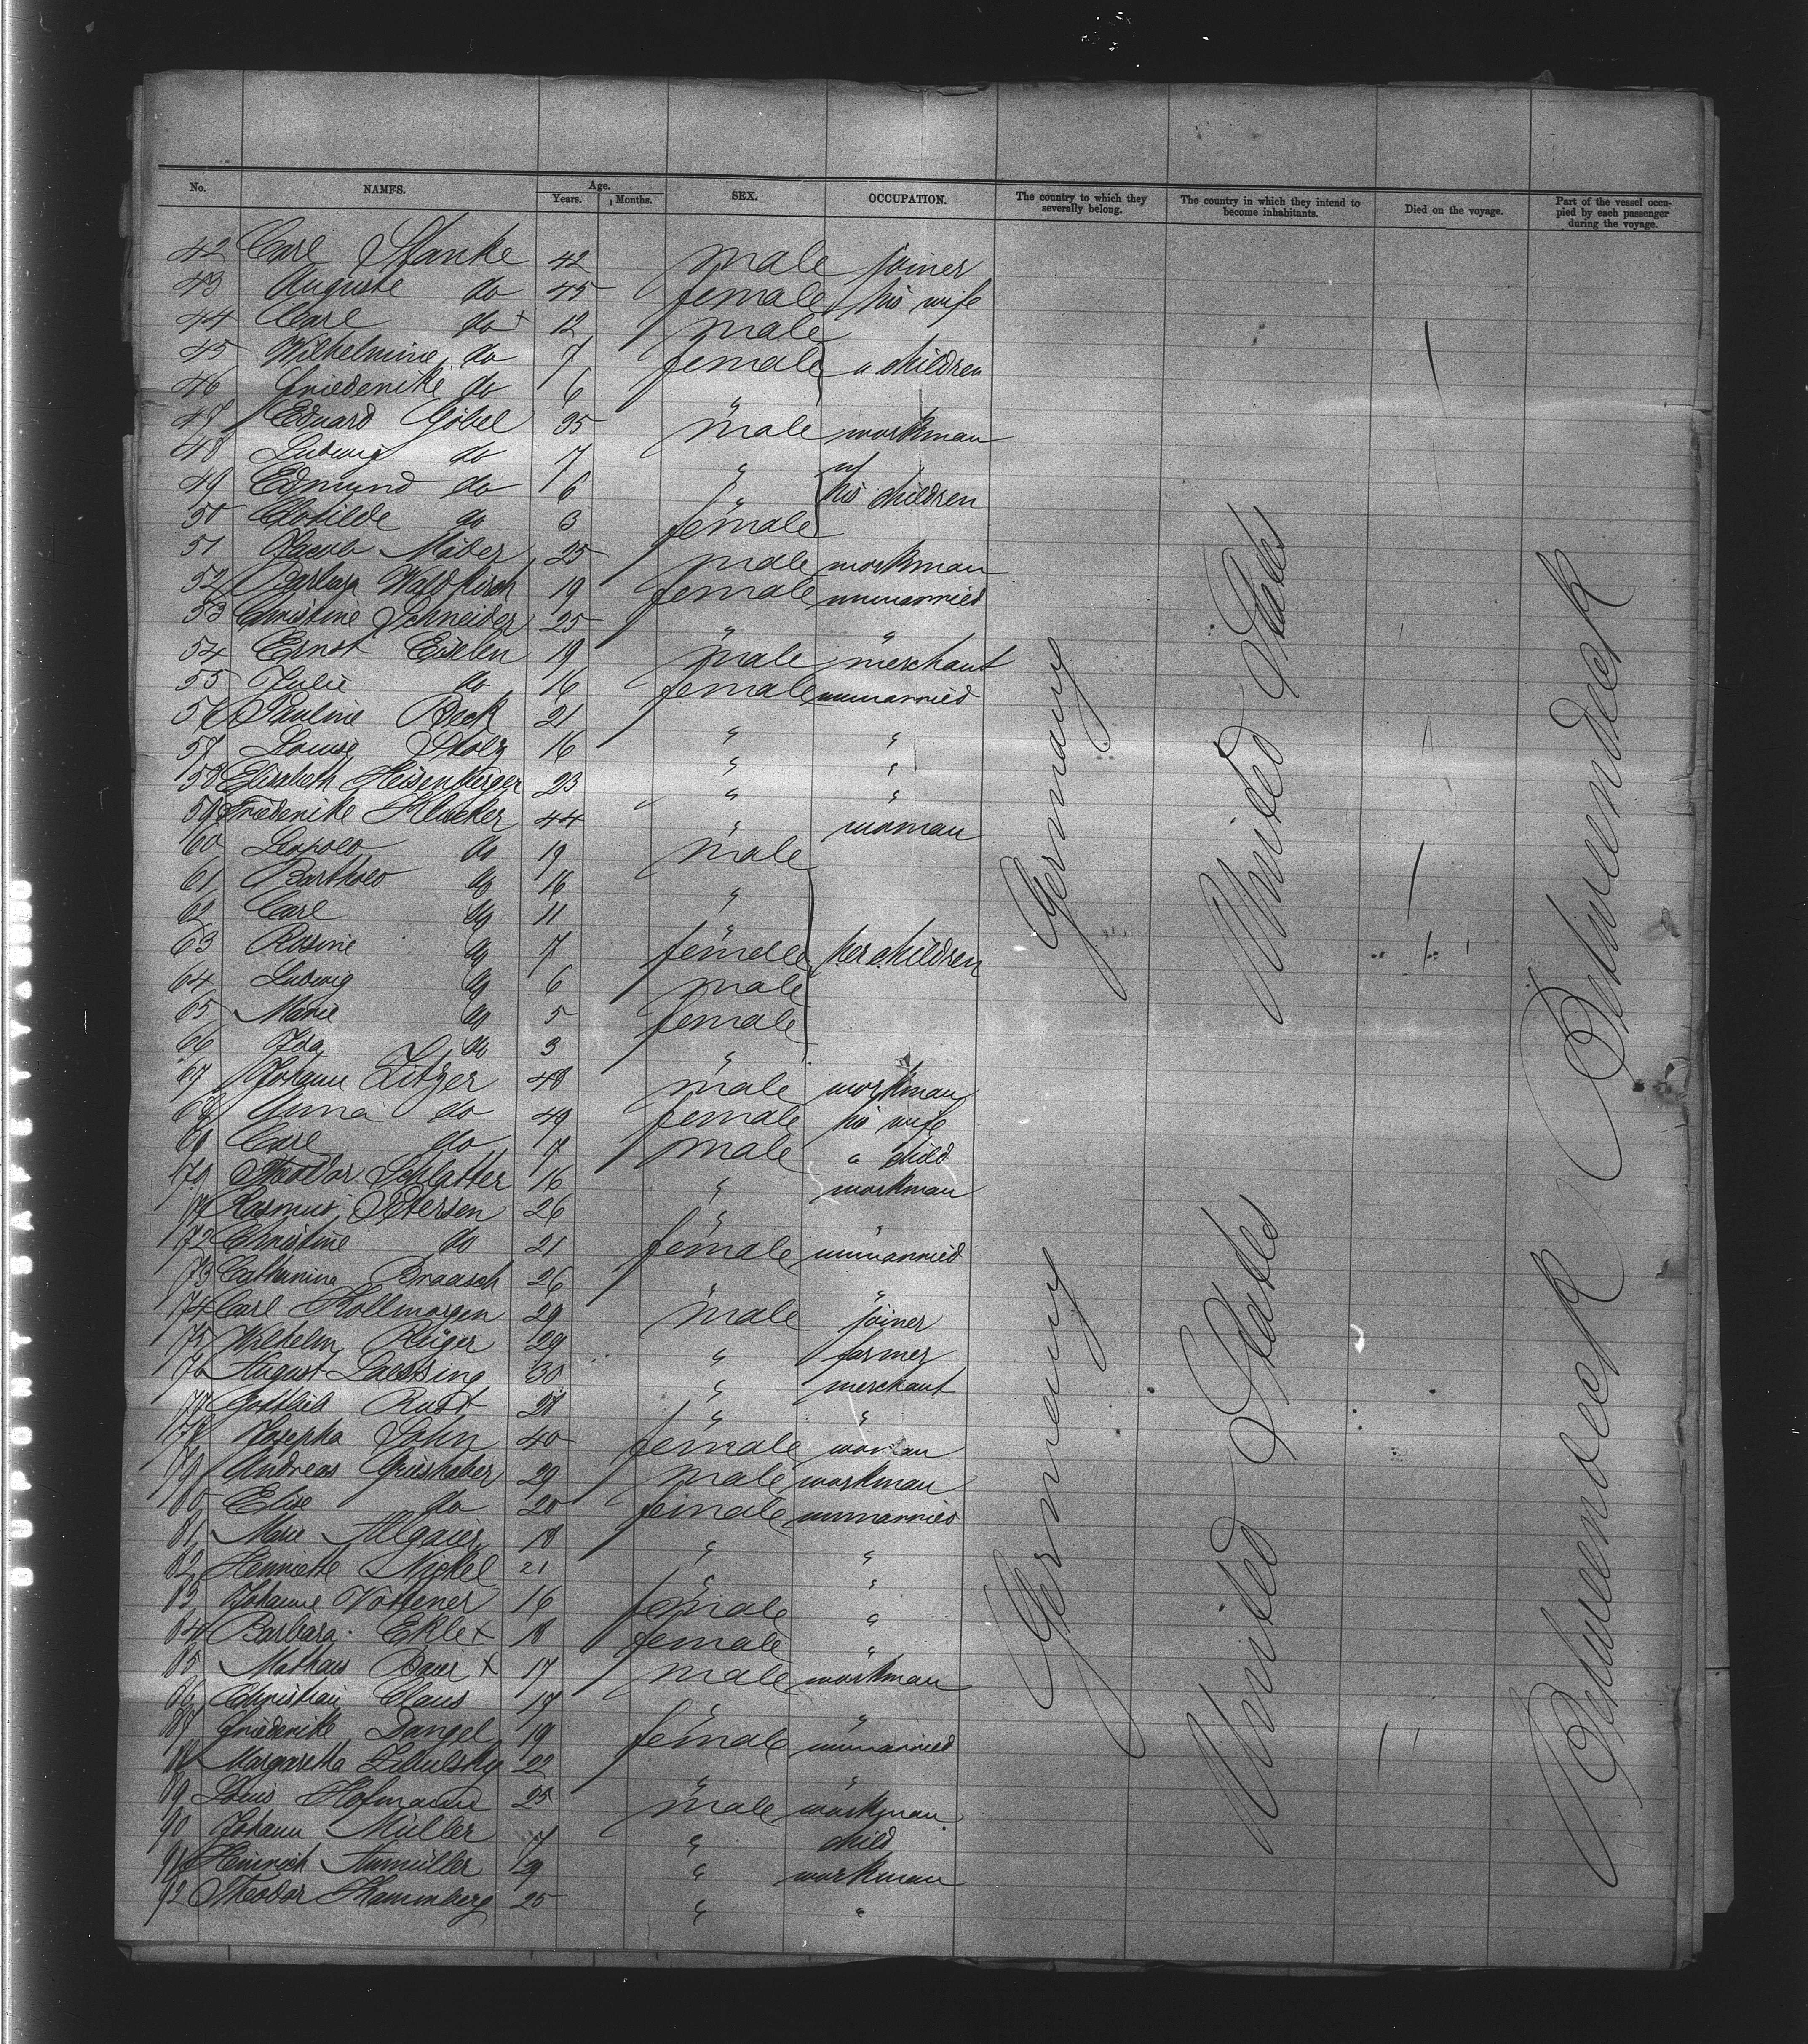 No. NAMES. Age. Years. Months. SEX. OCCUPATION. The country to which they severally belong. The country in which they intend to become inhabitants. Died on the voyage. Part of the vessel occupied by each passenger during the voyage.
42 Carl Stanke 42 male joiner
43 Auguste do 45 female his wife
44 Carl do x 12 male
45 Wilhelmine do 7 female " children
46 Friederike do 6 "
47 Eduard Göbel 35 male workman
48 Ludwig do 7 "
49 Edmund do 6 " his children
50 Clotilde do 3 female
51 Jacob Mäder 25 male workman
52 Barbara Waldkirch 19 female unmarried
53 Christine Schneider 25 " "
54 Ernst Eiselen 19 male merchant
55 Julie do 16 female unmarried
56 Pauline Beck 21 " "
57 Louise Stolz 16 " "
58 Elisabeth Heisenberger 23 " "
59 Friederike Klucker 44 " woman
60 Leopold do 19 male
61 Barthold do 16 "
62 Carl do 11 "
63 Rosine do 7 female her children
64 Ludwig do 6 male
65 Marie do 5 female
66 Ida do 3 "
67 Johann Litzer 48 male workman
68 Anna do 49 female his wife
69 Carl do 7 male " child
70 Theodor Schlatter 16 " workman
71 Rasmus Petersen 26 " "
72 Christine do 21 female unmarried
73 Catharina Braasch 26 " "
74 Carl Kollmorgen 29 male joiner
75 Wilhelm Rüger 29 " farmer
76 August Laessing 30 " merchant
77 Gottlieb Rust 28 " "
78 Josepha Sohn 40 female woman
79 Andreas Grieshaber 29 male workman
80 Elise do 20 female unmarried
81 Marie Allgaier 18 " "
82 Henriette Nickel 21 " "
83 Johanne Vottener 16 female "
84 Barbara Ekle x 18 female "
85 Mathaus Baur x 17 male workman
86 Christian Claus 17 " "
87 Friederike Dangel 19 female unmarried
88 Margaretha Zibulsky 22 " "
89 Louis Hofmann 25 male workman
90 Johann Müller 7 " child
91 Heinrich Aumüller 29 " workman
92 Theodor Hammberg 25 " "
Germany
United States
Betweendeck
Germany
United States
Betweendeck